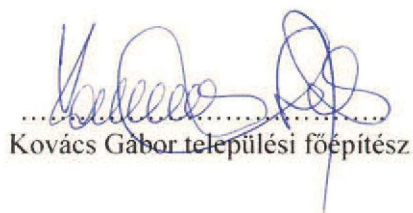 Kovács Gábor települési főépítész